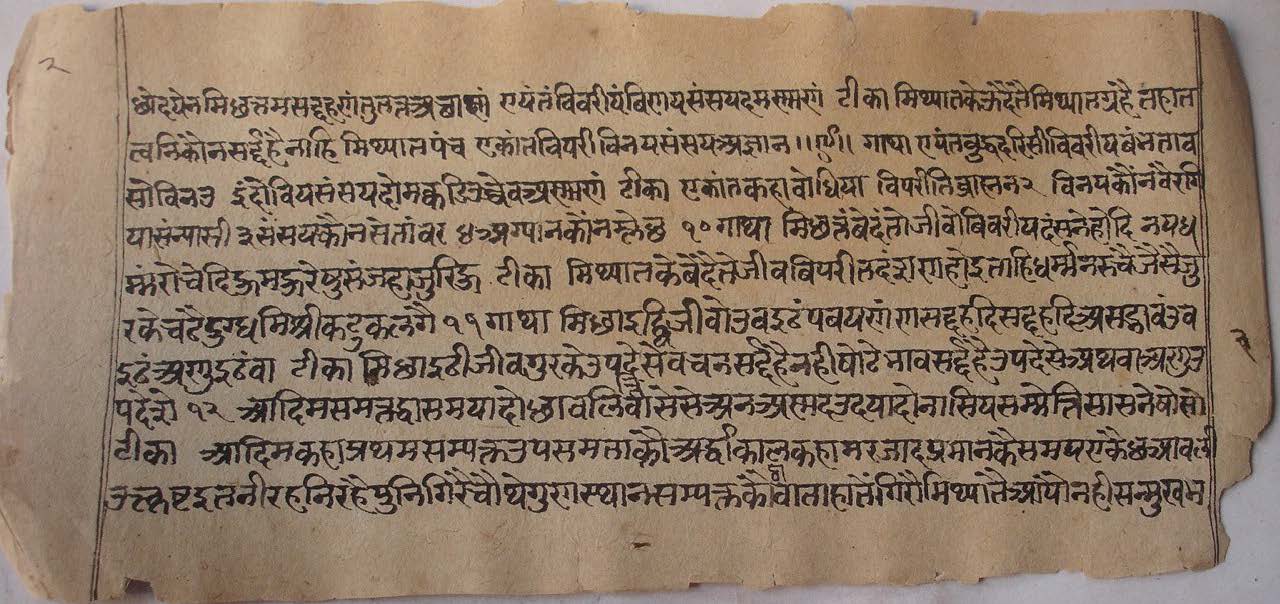 २
छोदयेनमिछत्तमसद्दहणंतुतच्चअछाणं एयंतंविवरीयंविणयसंसयदमण्णाणं टीका मिथ्यातकेउदैतैमिथ्यातग्रहैतहात
त्वनिकौनसर्द्दहैनाहि मिथ्यातपंच एकांतविपरीविनयसंसयअज्ञान ।।९।। गाथा एयंतबुद्धदरिसीविवरीयबंभताव
सोविनउ इंदोवियसंसयदोमक्कडिउचेवअण्णाणं टीका एकांतकहावोधिया विपरीतिब्राह्मन२ विनयकौंनवैरागि
यासंन्यासी ३ संसयकौनसेतांवर ४ अग्यानकौंनम्लेछ १० गाथा मिछत्तंवेदंतोजीवोबिवरीयदंसनेहोदि नयध
म्मंरोचेदिहुमहुरंषुरसंजहाजुरिदु टीका मिथ्यातकेवेदैतेजीवविपरीतदंसणहोइताहिधर्म्मनरुचैजैसैजु
रकेचटैदुग्धमिश्रीकटुकलगै ११ गाथा मिछाइट्ठिजीवोउवइटंपवयणंणसद्दहदिसद्दहदिअसद्भावंउव
इटंअणुइटंवा टीका मिछाइटीजीवगुरकेउपदेसेवचनसर्द्दहैनहीषोटेभावसर्द्दहैउपदेसेअथवाअणउ
पदेसे १२ आदिमसमत्तद्धासमयादोछावलित्तिवासेसेअनअण्णदरउदयादोनासियसम्मोत्तिसासनेषोसो
टीका आदिमकहाप्रथमसम्यक्तउपसमताकौअर्द्धाकालकहामरजादप्रमानकैसमयएकैछआवली
उत्कृष्टइतनीरहनिरहैपुनिगिरैचौथेगुणस्थानसम्यक्तकौवाताहातेंगिरौमिथ्यातैआयौनहीसन्मुखभ
२